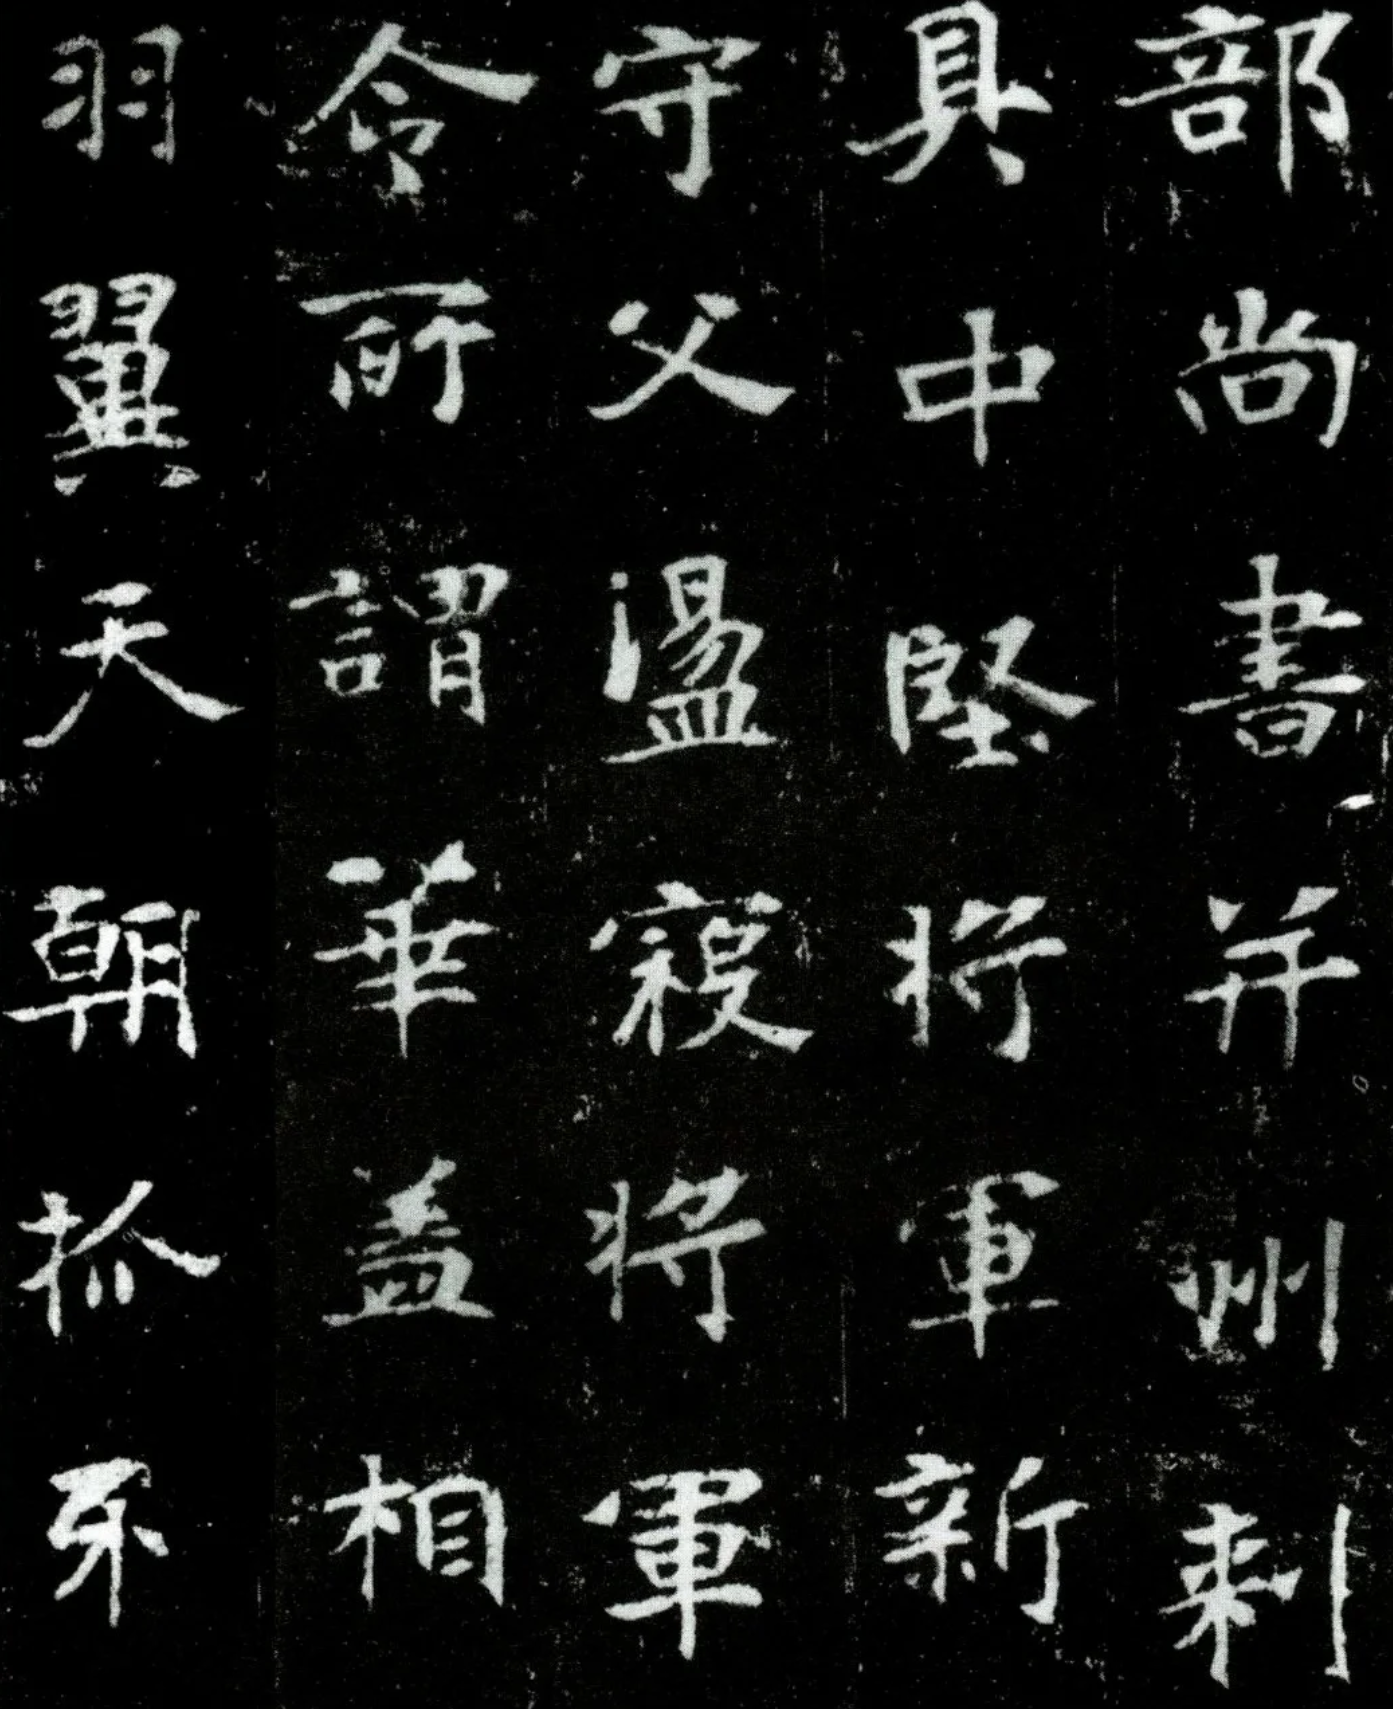 部尚書并州刺
具中堅將軍新
守父盪寇將軍
令所謂華盖相
羽翼天朝抓牙